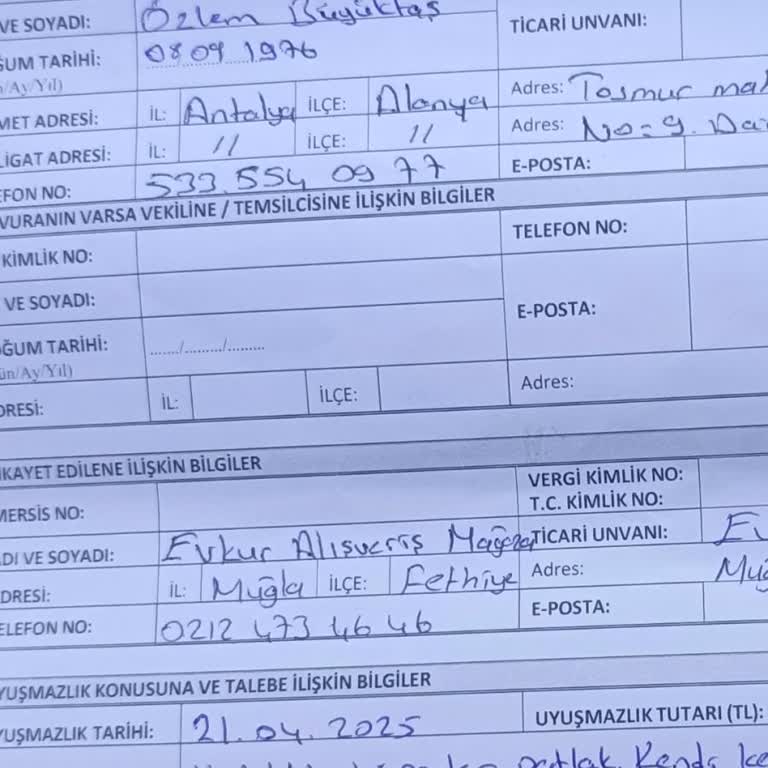 VE SOYADI: Özlem Büyüktaş TİCARİ UNVANI:
ĞUM TARİHİ: 08 09 1976
/Ay/Yıl)
MET ADRESİ: İL: Antalya İLÇE: Alanya Adres: Tosmur mah
LİGAT ADRESİ: İL: // İLÇE: // Adres: No=9. Dai
EFON NO: 533.554 09 77 E-POSTA:
VURANIN VARSA VEKİLİNE / TEMSİLCİSİNE İLİŞKİN BİLGİLER
KİMLİK NO: TELEFON NO:
VE SOYADI: E-POSTA:
ĞUM TARİHİ: ....../......../........
ün/Ay/Yıl)
DRESİ: İL: İLÇE: Adres:
İKAYET EDİLENE İLİŞKİN BİLGİLER
MERSİS NO: VERGİ KİMLİK NO:
T.C. KİMLİK NO:
ADI VE SOYADI: Evkur Alışveriş Mağaza TİCARİ UNVANI: Ev
DRESİ: İL: Muğla İLÇE: Fethiye Adres: Muğ
ELEFON NO: 0212 473 46 46 E-POSTA:
YUŞMAZLIK KONUSUNA VE TALEBE İLİŞKİN BİLGİLER
YUŞMAZLIK TARİHİ: 21.04.2025 UYUŞMAZLIK TUTARI (TL):
patlak. Kends